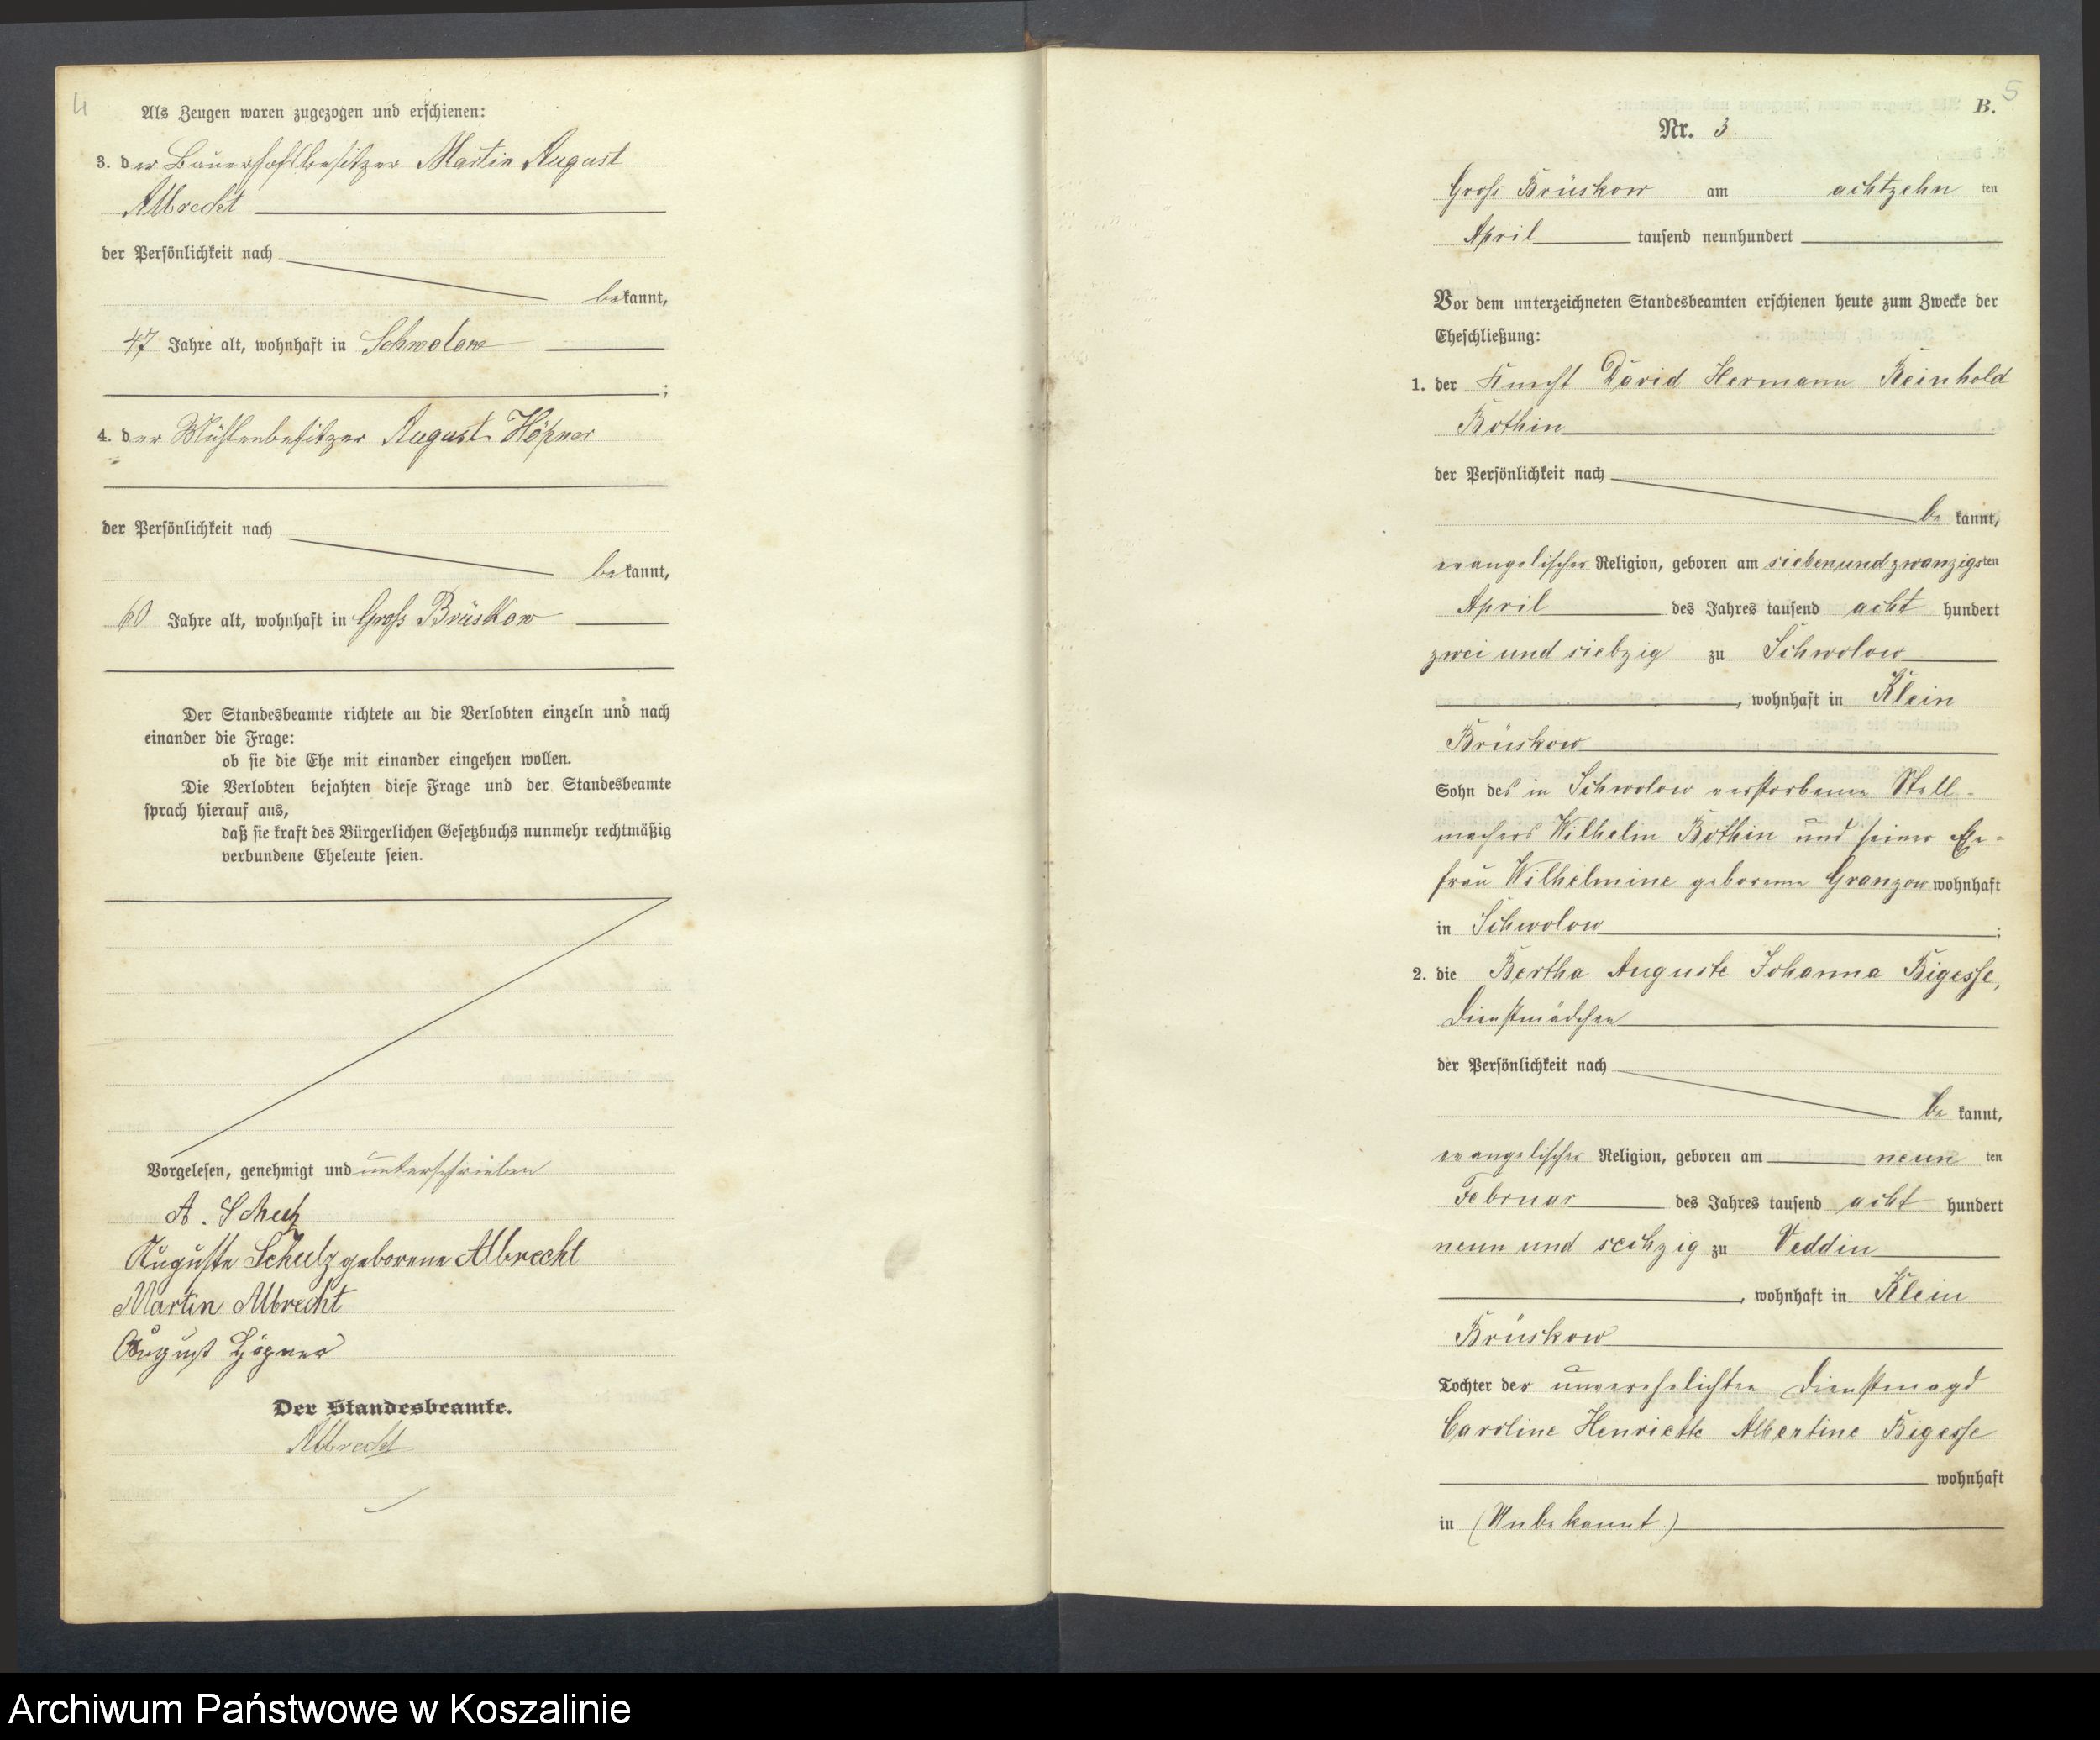 4
Als Zeugen waren zugezogen und erschienen:
3. der Bauerhofsbesitzer Martin August
Albrecht
der Persönlichkeit nach
bekannt,
47 Jahre alt, wohnhaft in Schwolow
;
4. der Mühlenbesitzer August Höpner
der Persönlichkeit nach
bekannt,
60 Jahre alt, wohnhaft in Groß Brüskow
Der Standesbeamte richtete an die Verlobten einzeln und nach
einander die Frage:
ob sie die Ehe mit einander eingehen wollen.
Die Verlobten bejahten diese Frage und der Standesbeamte
sprach hierauf aus,
daß sie kraft des Bürgerlichen Gesetzbuchs nunmehr rechtmäßig
verbundene Eheleute seien.
Vorgelesen, genehmigt und unterschrieben
A. Schulz
Auguste Schulz geborene Albrecht
Martin Albrecht
August Höpner
Der Standesbeamte.
Albrecht
5
B.
Nr. 3.
Groß Brüskow am achtzehn ten
April tausend neunhundert
Vor dem unterzeichneten Standesbeamten erschienen heute zum Zwecke der
Eheschließung:
1. der Knecht David Hermann Reinhold
Bothin
der Persönlichkeit nach
be kannt,
evangelischer Religion, geboren am siebenundzwanzigsten
April des Jahres tausend acht hundert
zwei und siebzig zu Schwolow
, wohnhaft in Klein
Brüskow
Sohn des in Schwolow verstorbenen Stell-
machers Wilhelm Bothin und seiner Ehe-
frau Wilhelmine geborenen Granzow wohnhaft
in Schwolow ;
2. die Bertha Auguste Johanna Bigesse,
Dienstmädchen
der Persönlichkeit nach
be kannt,
evangelischer Religion, geboren am neun ten
Februar des Jahres tausend acht hundert
neun und sechzig zu Veddin
, wohnhaft in Klein
Brüskow
Tochter der unverehelichten Dienstmagd
Caroline Henriette Albertine Bigesse
wohnhaft
in (Unbekannt)
Archiwum Państwowe w Koszalinie